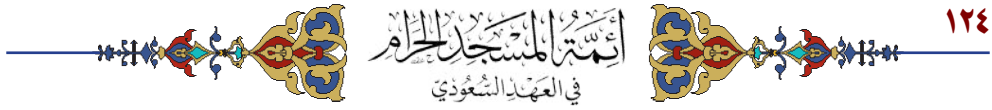 ١٢٤
أَئِمَّةُ المَسْجِدِ الحَرَامِ
فِي العَهْدِ السُّعُودِيّ